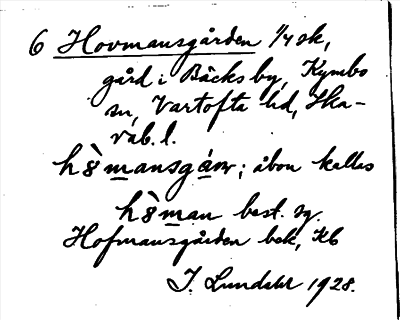 6 Hovmansgården 1/4 sk,
gård i Bäcks by, Kymbo
sn, Vartofta hd, Ska-
rab. l.
h8̀mansgáɴ; åbon kallas
h8̀man best. sg.
Hofmansgården bek, Kb
I. Lundahl 1928.